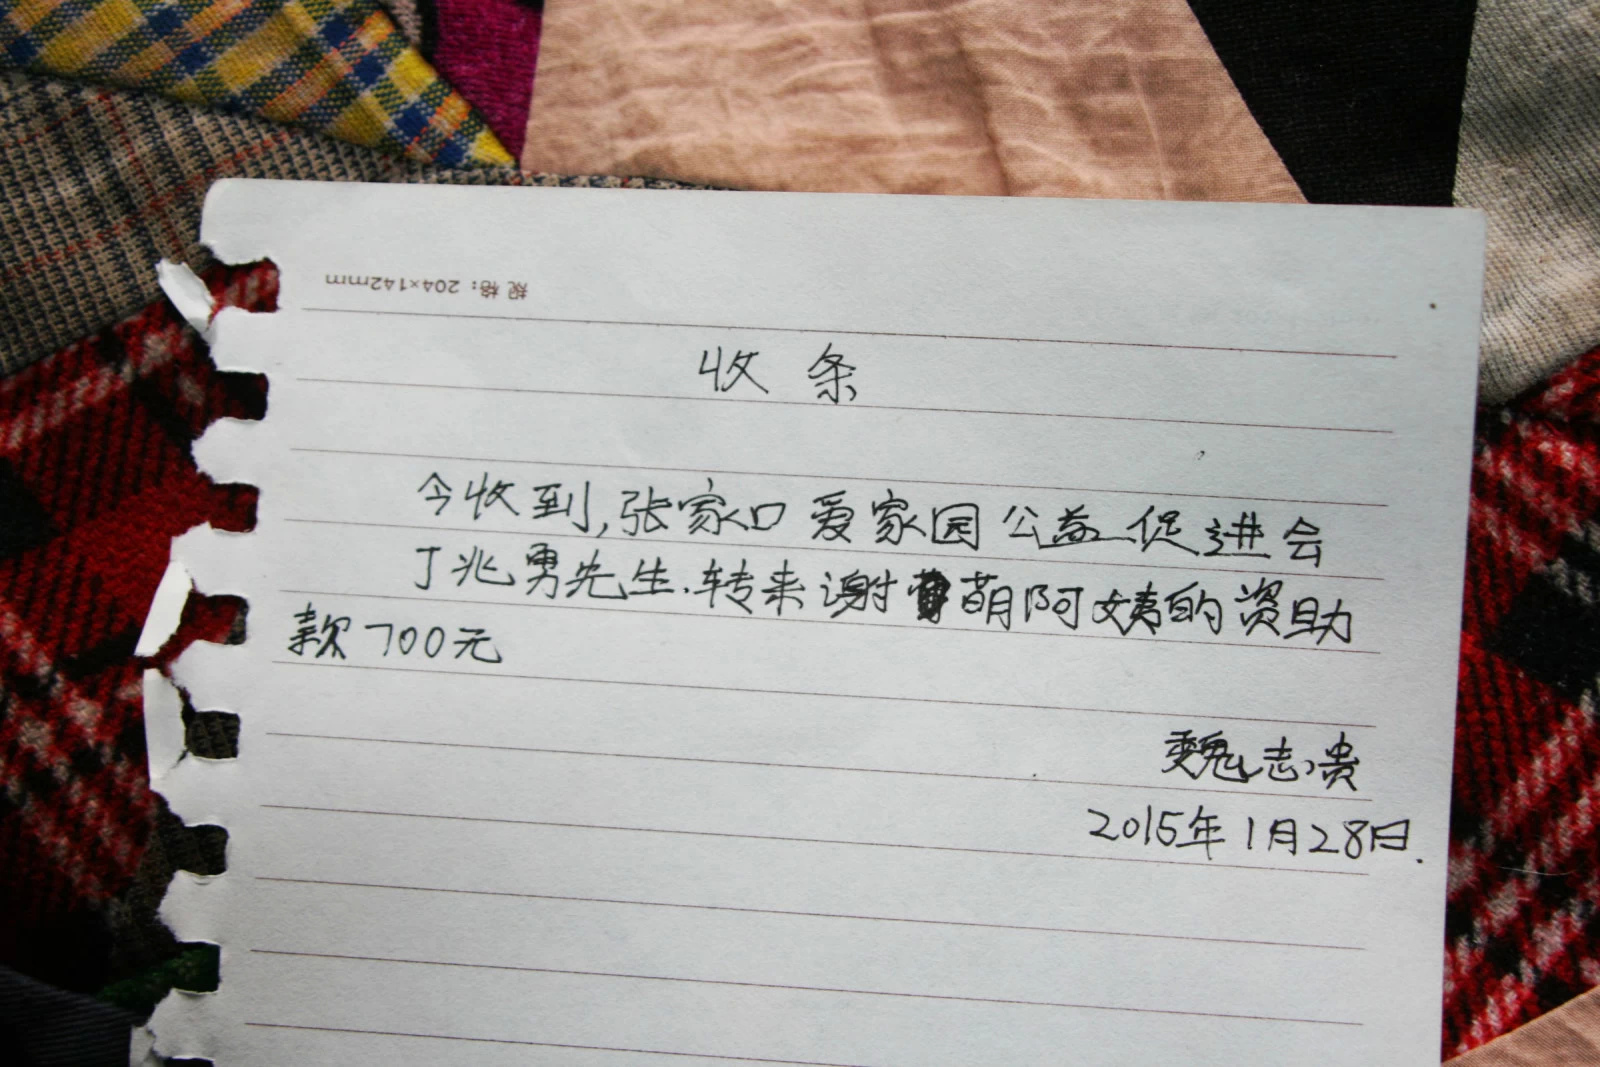 规格：204×142mm
收条
今收到，张家口爱家园公益促进会
丁兆勇先生.转来谢萌阿姨的资助
款700元
魏志贵
2015年1月28日.